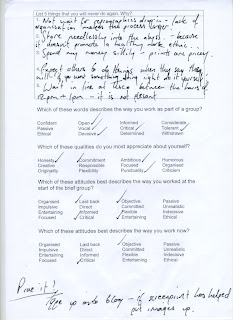 List 5 things that you will never do again. Why?
1. Not wait for reprographics drop in - lack of
organisation makes the process longer.
2. Stare needlessly into the abyss - because
it doesn't promote a healthy work ethic.
3. Spend any money - prints are pricey
4. Expect others to do things when they say they
will - if you want something doing right do it yourself.
5. Wait in line at between the hours of
12pm + 1pm - it is not pleasant.
Which of these words describes the way you work as part of a group?
Confident Open ✓ Informed ✓ Considerate
Passive Vocal ✓ Critical ✓ Tolerant
Ethical Deceive Determined ✓ Withdrawn
Which of these qualities do you most appreciate about yourself?
Honesty ✓ Commitment Ambitious ✓ Humorous
Creative Responsible Ethical Organised
Originality Flexibility Punctuality Criticism
Which of these attitudes best describes the way you worked at the
start of the brief group?
Organised Laid back Objective Passive
Impulsive Direct Committed Unrealistic
Entertaining Informed Flexible Indecisive
Focused Critical Entertaining Ethical
Which of these attitudes best describes the way you work now?
Organised Laid back Objective Passive
Impulsive Direct Committed Unrealistic
Entertaining Informed Flexible Indecisive
Focused Critical Entertaining Ethical
Prove it!
Type up onto blog - if screenprint has helped
put images up.